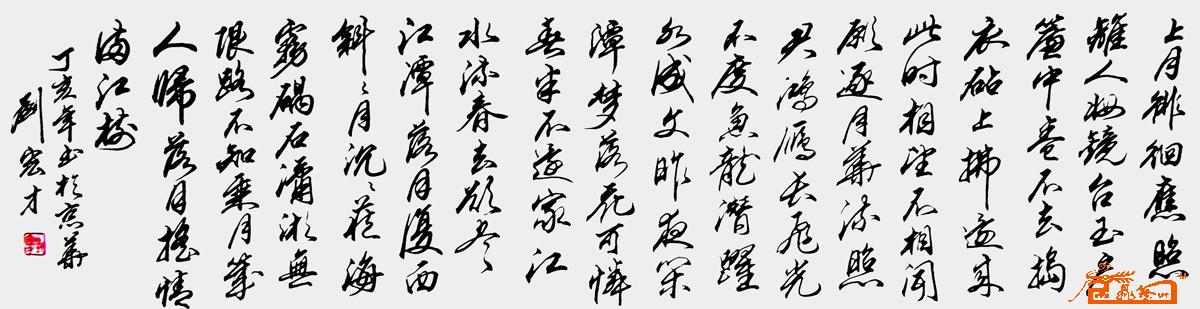 上月徘徊應照
離人妝鏡台玉户
簾中卷不去搗
衣砧上拂還来
此時相望不相聞
願逐月華流照
君鴻雁長飛光
不度魚龍潜躍
水成文昨夜閑
潭梦落花可憐
春半不還家江
水流春去欲尽
江潭落月復西
斜々月沉々藏海
霧碣石瀟湘無
限路不知乘月幾
人歸落月摇情
滿江樹
丁亥年书於京華
劉宏才